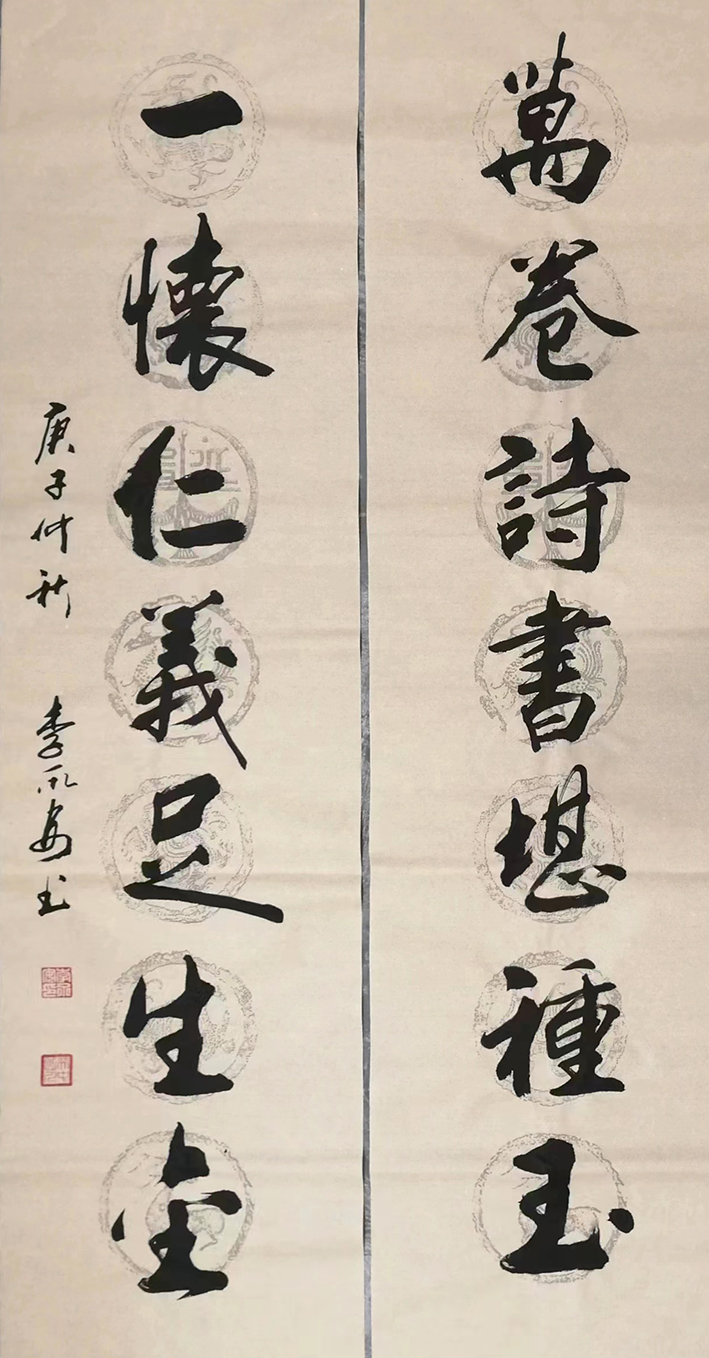 萬卷詩書堪種玉
一懷仁義足生金
庚子仲秋 李永安书